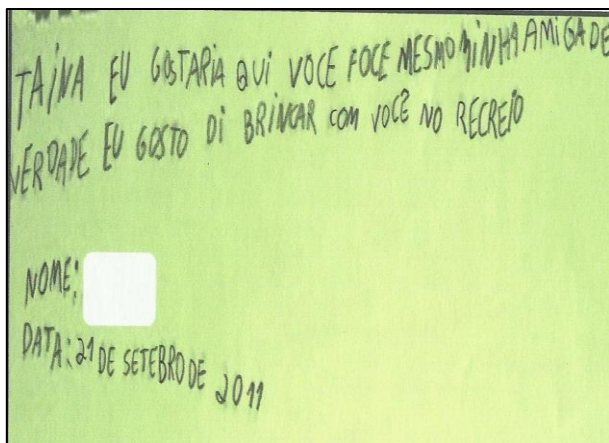 TAINA EU GOSTARIA QUi VOCE FOCE MESMO MINHA AMIGA DE
VERDADE EU GOSTO Di BRINCAR COM VOCÊ NO RECREIO
NOME:
DATA: 21 DE SETEBRO DE 2011